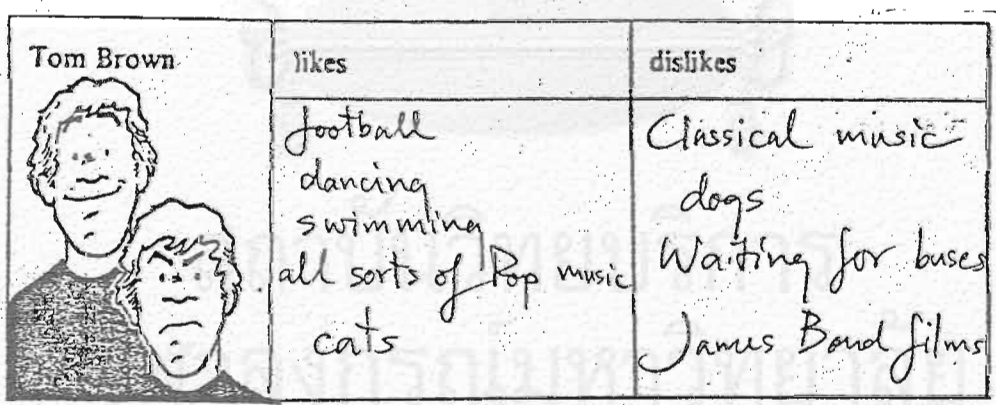 Tom Brown
likes
dislikes
football
dancing
swimming
all sorts of Pop music
cats
Classical music
dogs
Waiting for buses
James Bond films